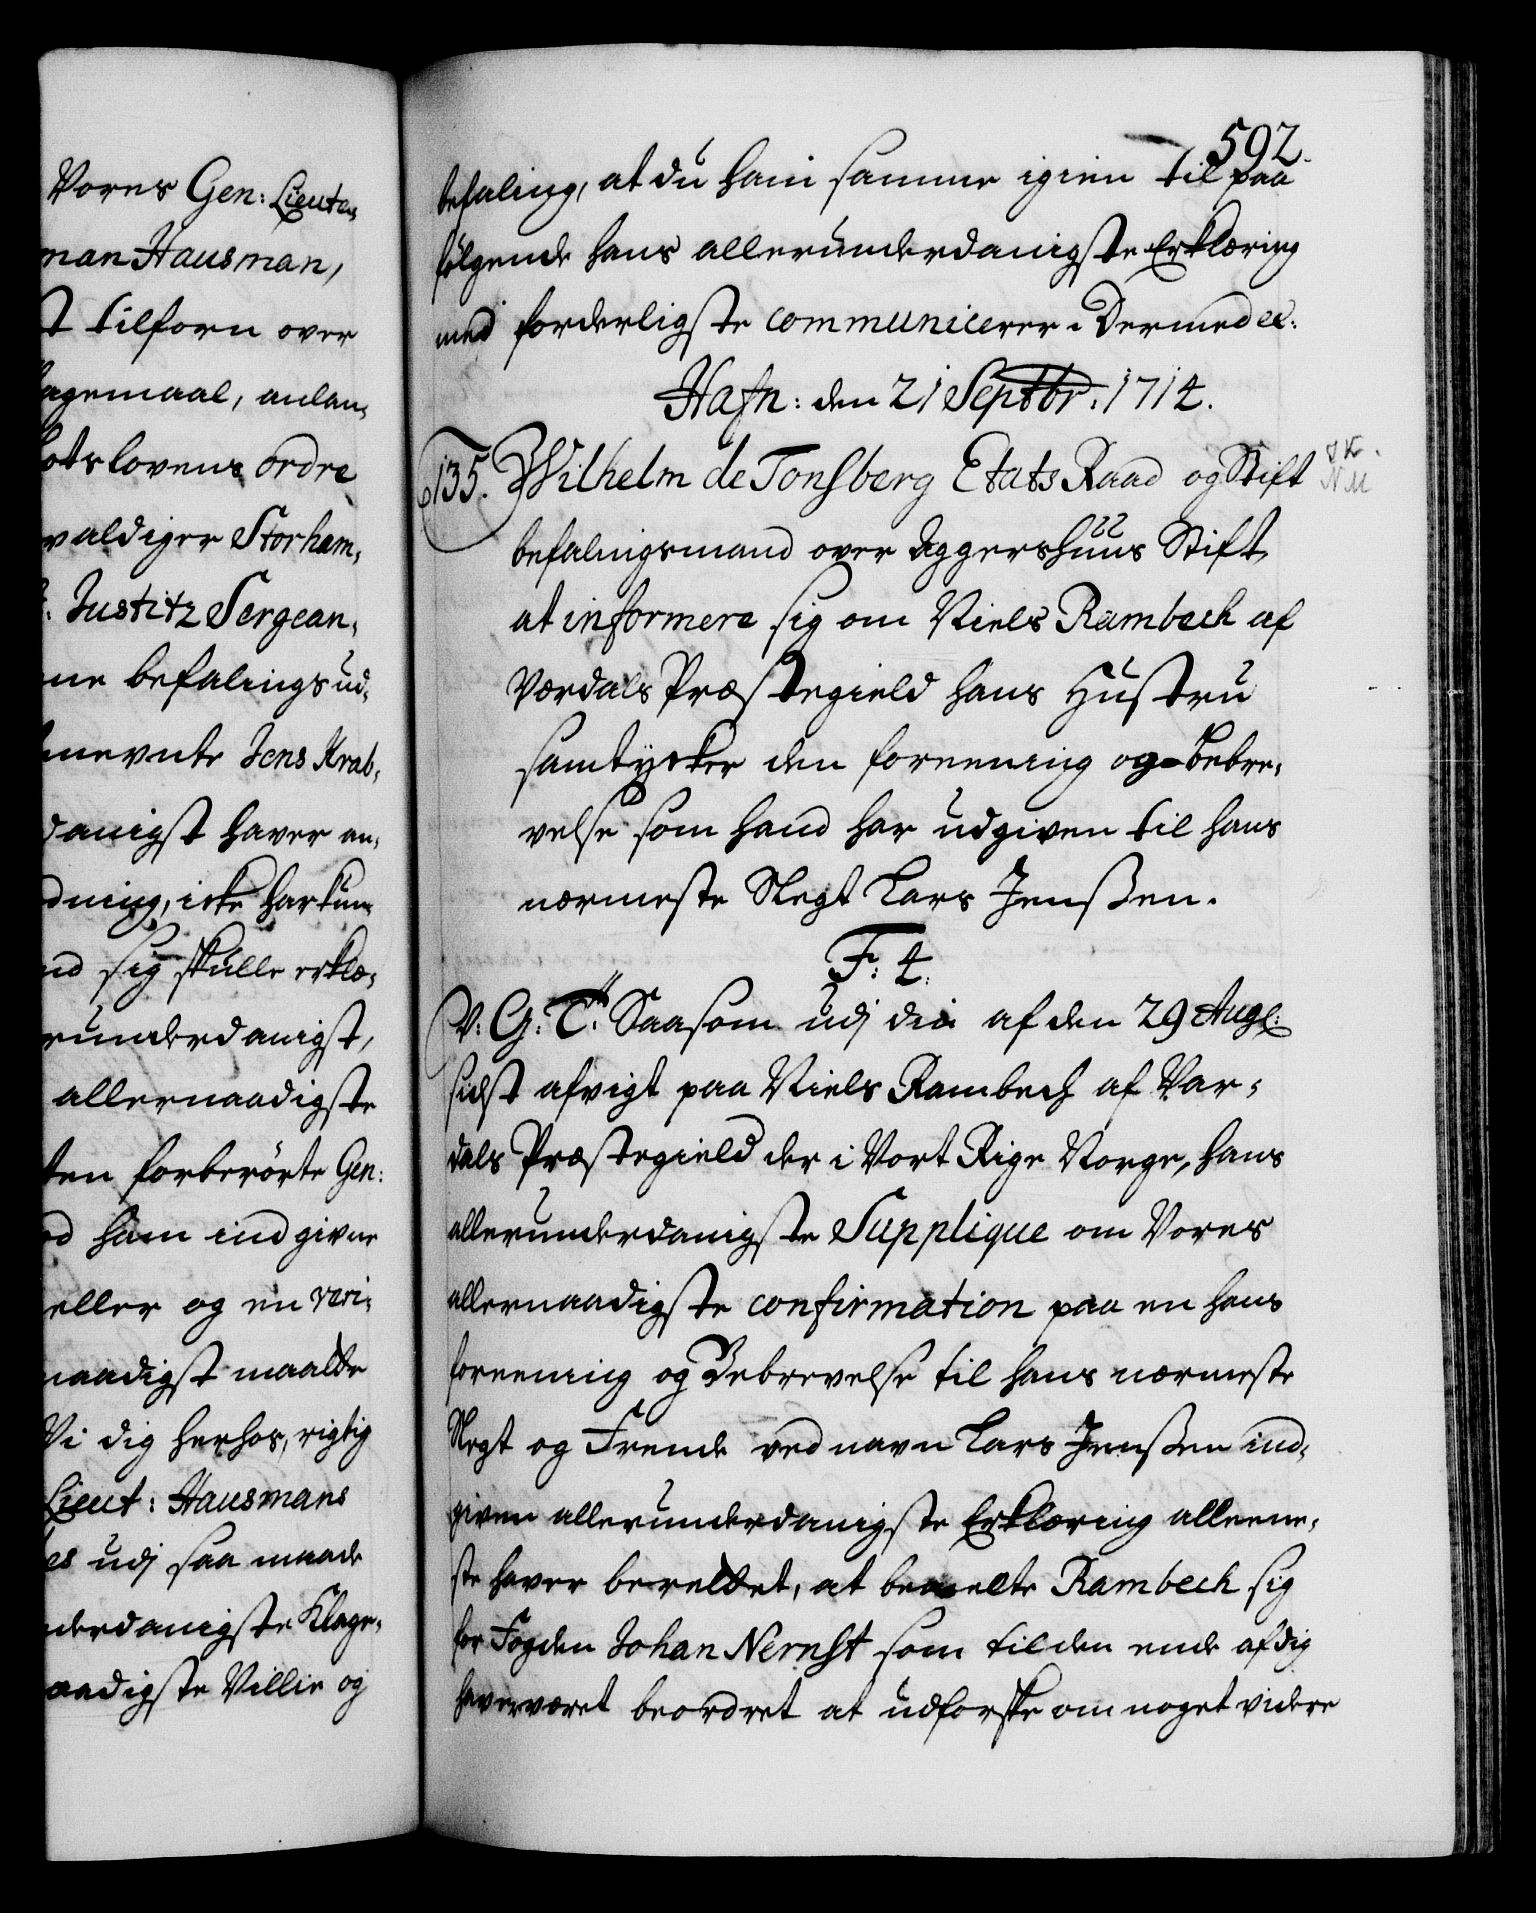 Vores Gen: Lieute-
man Hausman,
st tilforn over
lagemaal, anlan-
otslovens ordre
valdiger Storham-
: Justitz Sergean-
ne befalings ud-
nevnte Jens Krab-
danigst haver an-
dning, icke har kun-
nd sig skulle erklæ-
runderdanigst,
allernaadigste
ten forberørte Gen:
d ham indgivne
eller og en veri-
naadigst maatte
Vi dig herhos, rigtig
Lieut: Hausmans
es udj saa maade
nderdanigste Klage-
aadigste Villie og
592.
befaling, at du ham samme igien til paa
følgende hans allerunderdanigste Erklæring
med forderligste communicerer. Dermed etc:
Hafn: den 21 Septbr: 1714.
135. Wilhelm de Tonsberg Etats Raad og Stift
befalingsmand over Aggershuus Stift,
at informere sig om Niels Rambech af
Vordals Præstegield hans Hustru
samtycker den foreening og bebre-
velse som hand har udgiven til hans
nærmeste Slegt Lars Jenssen.
F: 4.
V: G: T: Saasom udj din af den 29 Aug:
sidst afvigt paa Niels Rambech af Var-
dals Præstegield der i Vort Rige Norge, hans
allerunderdanigste Supplique om Vores
allernaadigste confirmation paa en hans
foreening og Bebrevelse til hans nærmeste
Slegt og Frende ved navn Lars Jenssen ind-
given allerunderdanigste Erklæring alleene-
ste haver berettet, at bemelte Rambech sig
for Fogden Johan Nernst som til den ende af dig
haver været beordret at udforske om noget videre